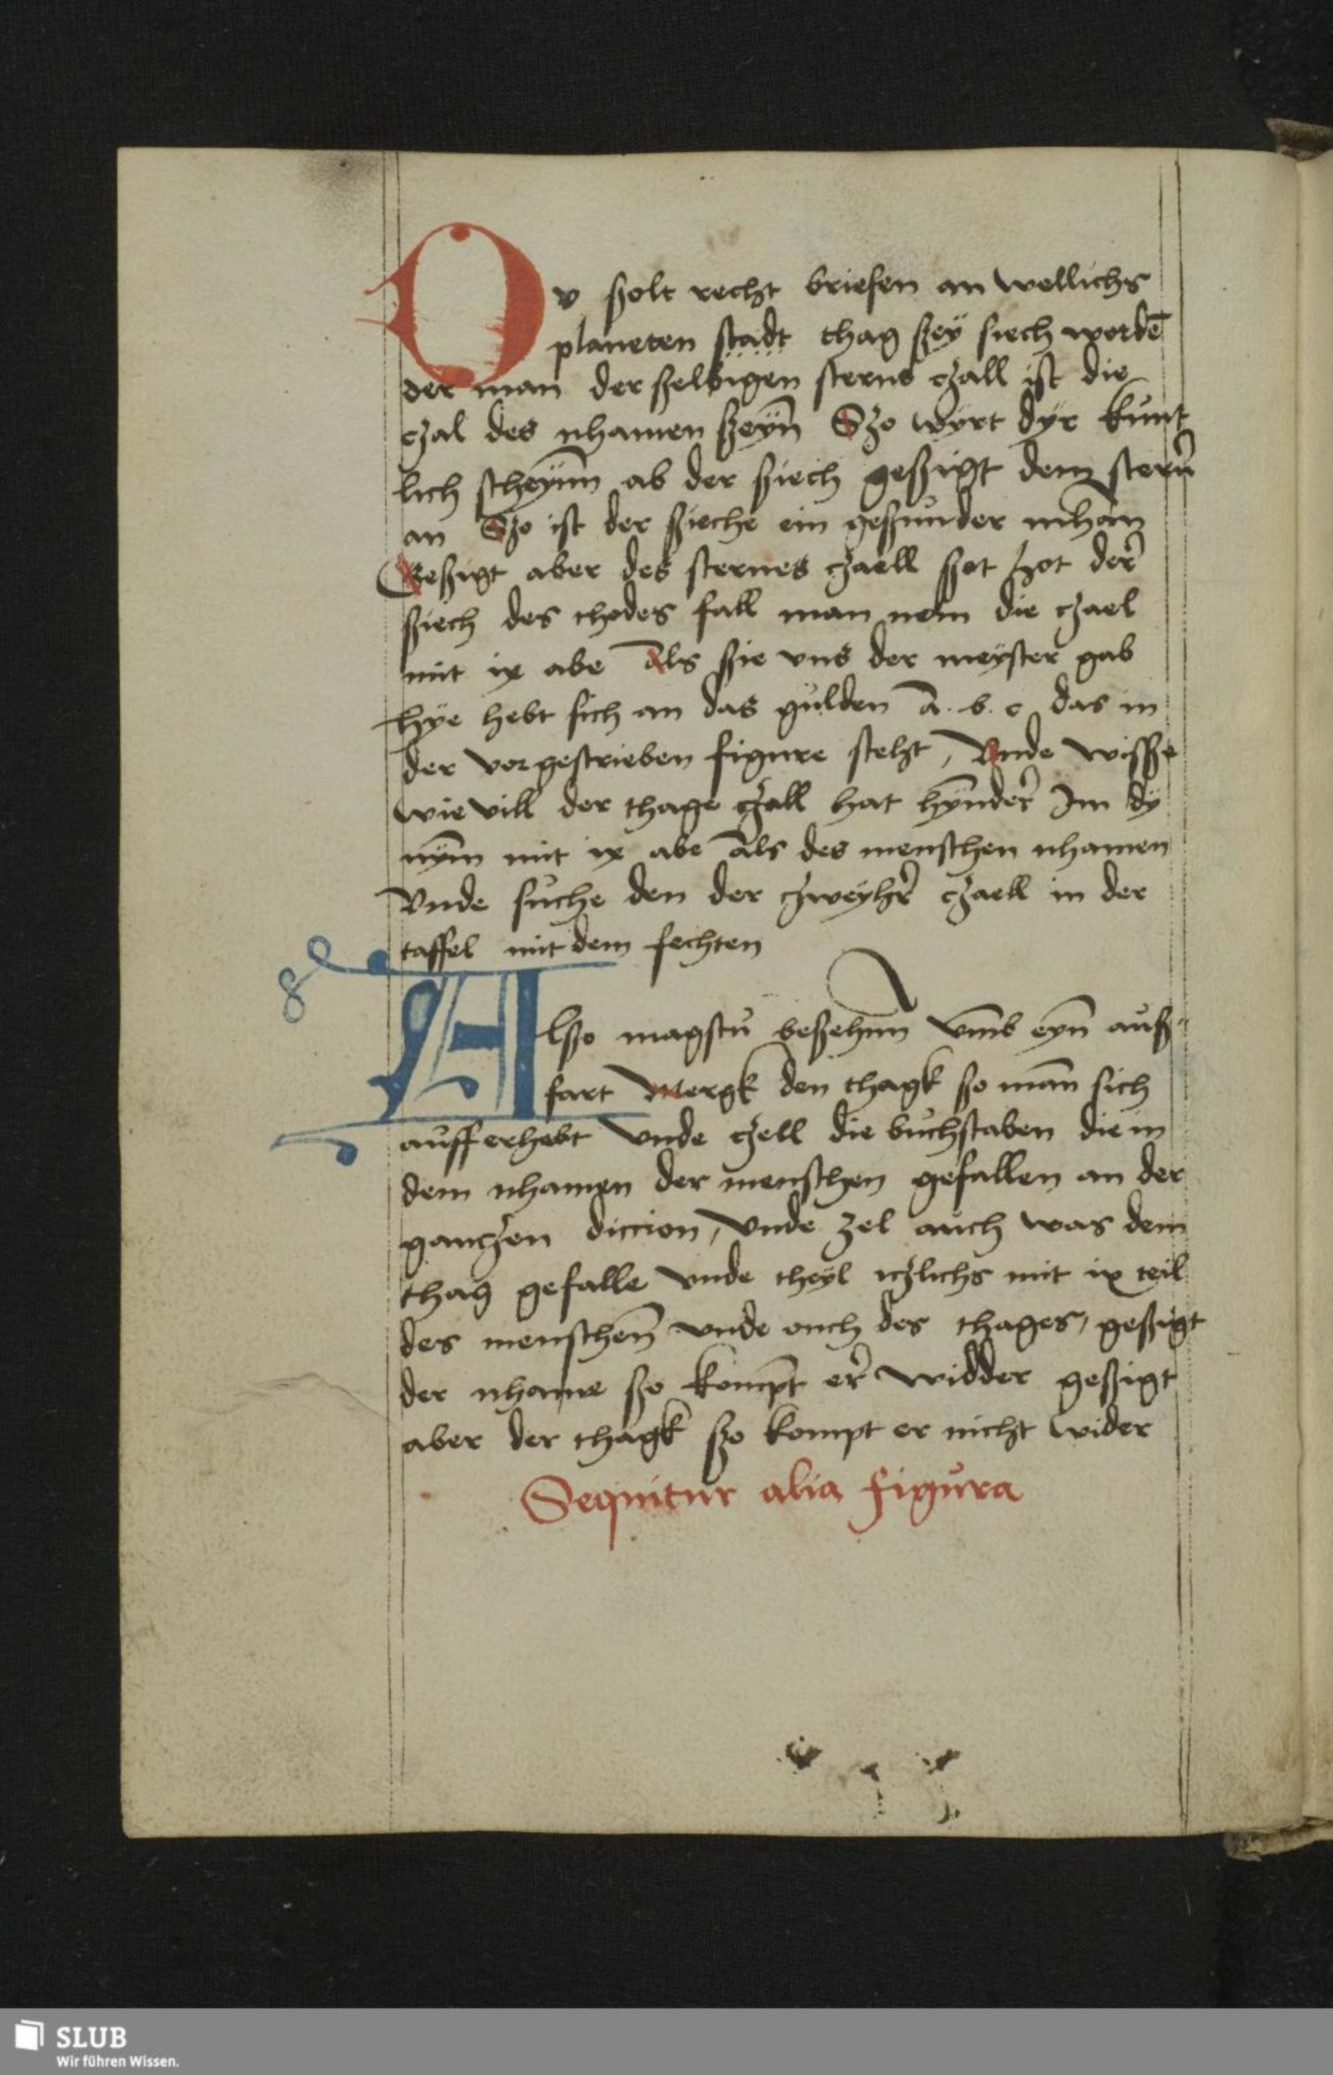 Du ßolt recht briefen an wellichs
planeten stadt thag sey siech wordē
der man der ßelbigen sterns czall ist die
czal des nhamen ßeyn̄ Szo wyrt dyr kunt
lich scheynn ab der ßiech geßigt dem stern
an Szo ist der ßieche ein geßunder mhan
Geßigt aber des sternes czaell ßot hot der
ßiech des thodes fall man nem die czael
mit ix abe Als ßie vns der meyster gab
hye hebt sich an das gulden A. b. c das in
der vorgestrieben figure steht, Vnde wisße
wie vill der thage czall hat hynder Im dy
nym mit ix abe Als des menschen nhamen
Vnde suche den der czweyhr czaell in der
taffel mit dem fechten
Alßo magstu beßehnn vmb eyn auß
fart Mergk den thagk so man sich
aufferhebt Vnde czell die buchstaben die in
dem nhamen der menschen gefallen an der
ganczen diccion, Vnde zel auch was dem
thag gefalle vnde theyl iczlichs mit ix teil
des menschen vnde ouch des thages, geßigt
der nhame ßo kompt er widder geßigt
aber der thagk ßo kompt er nicht wider
Sequitur alia figura
SLUB
Wir führen Wissen.